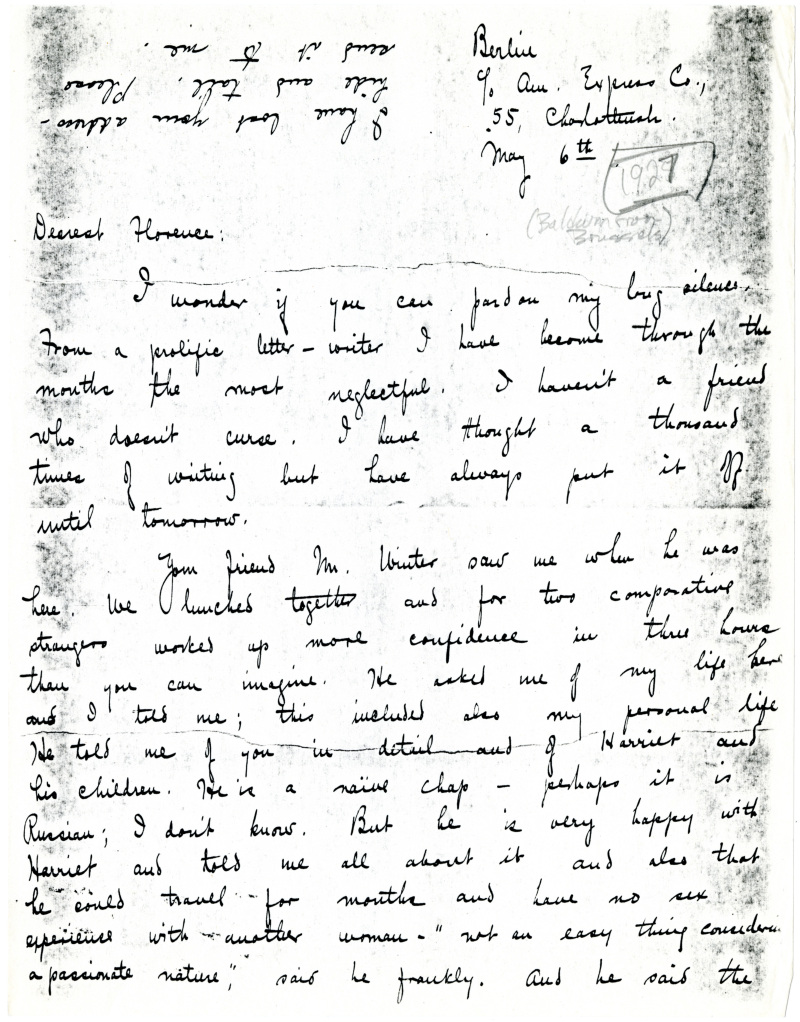 Berlin
c/o Am. Express Co.,
55, Charlottenstr.
May 6th
1927
(Baldwin from
Brussels)
I have lost your address –
hide and tail. Please
send it to me.
Dearest Florence:
I wonder if you can pardon my long silence.
From a prolific letter-writer I have become through the
months the most neglectful. I haven't a friend
who doesn't curse. I have thought a thousand
times of writing but have always put it off
until tomorrow.
Your friend Mr. Winter saw me when he was
here. We lunched together and for two comparative
strangers worked up more confidence in three hours
than you can imagine. He asked me of my life here
and I told me; this included also my personal life
He told me of you in detail and of Harriet and
his children. He is a naïive chap – perhaps it is
Russian; I don't know. But he is very happy with
Harriet and told me all about it and also that
he could travel for months and have no sex
experience with another woman – "not an easy thing considering
a passionate nature," said he frankly. And he said the